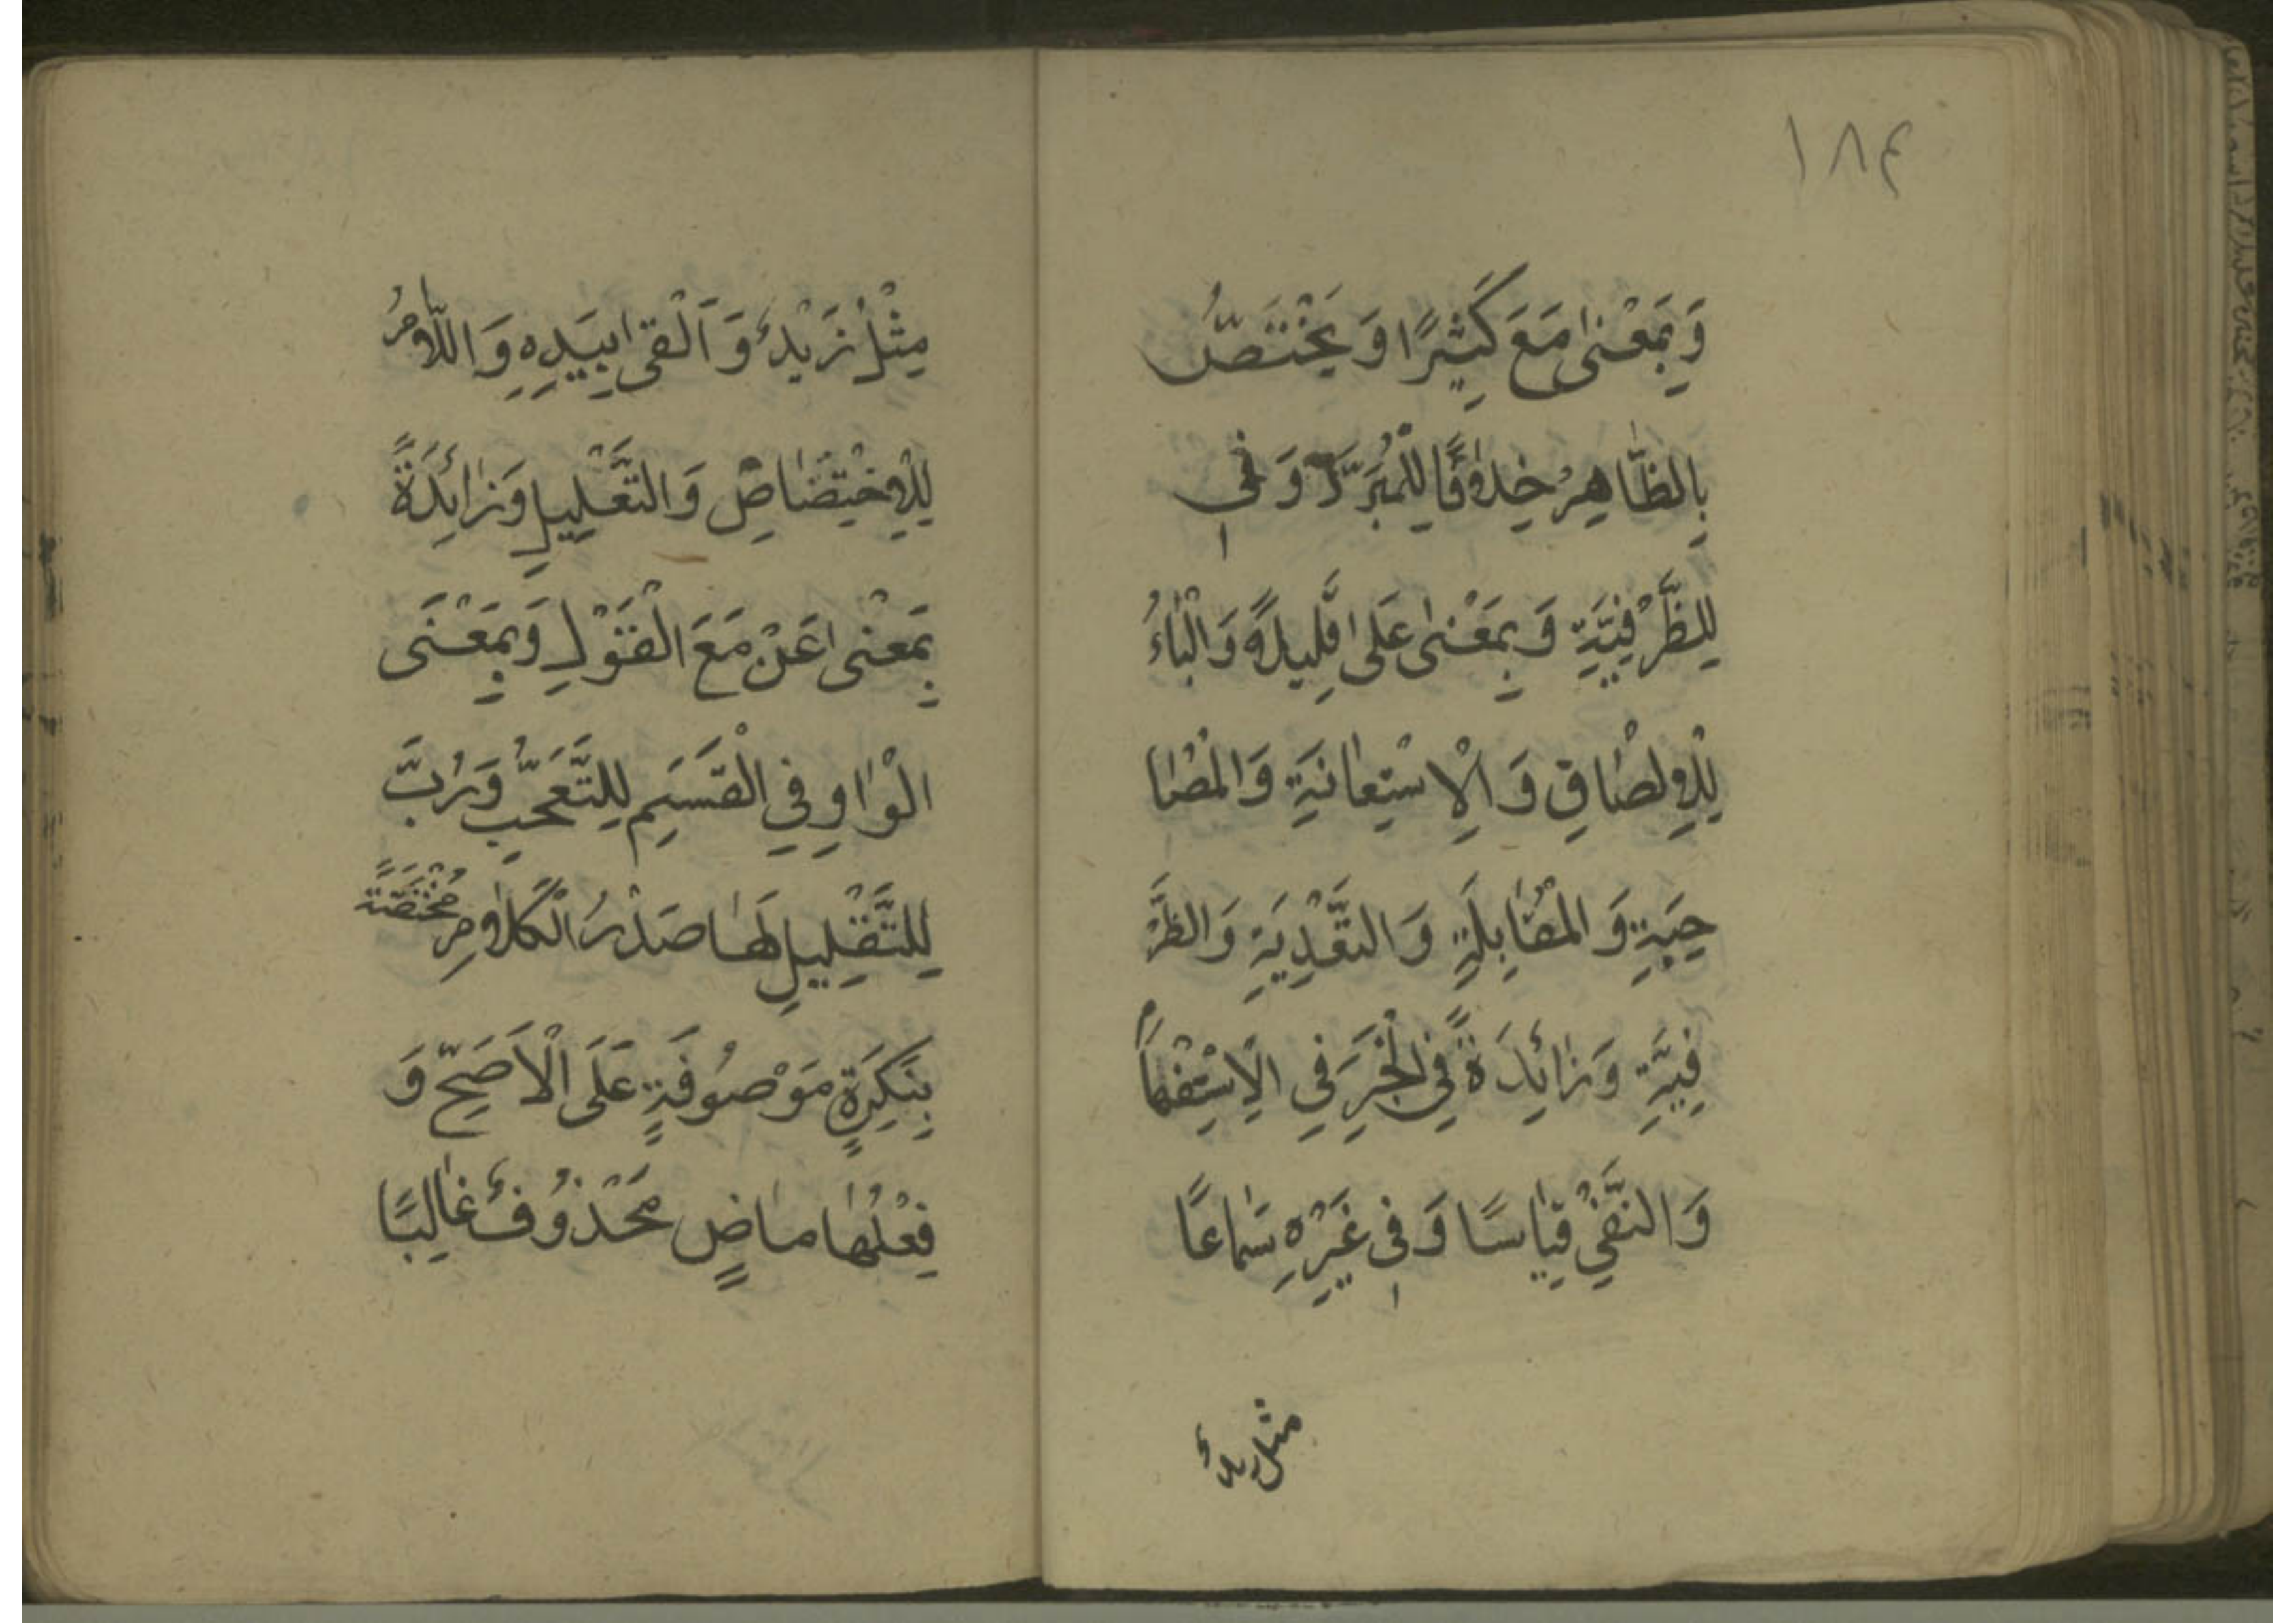 ١٨٤
وَبِمَعْنٰى مَعَ كَثِيْرًا وَ يَخْتَصُّ
بِالظَّاهِرِ خِلَافًا لِلْمُبَرَّدِ وَ فِي
لِلظَّرْفِيَّةِ وَ بِمَعْنٰى عَلٰى قَلِيلًا وَ الْبَاءُ
لِلْاِلْصَاقِ وَ الْاِسْتِعَانَةِ وَ الْمُصَا
حَبَةِ وَ الْمُقَابِلَةِ وَ التَّعْدِيَةِ وَ الظَّرْ
فِيَّةِ وَ زَائِدَةً فِي الْخَبَرِ فِي الْاِسْتِفْهَامِ
وَ النَّفْيِ قِيَاسًا وَ فِي غَيْرِهِ سَمَاعًا
مثل زيد
مِثْلُ زَيْدٌ وَ اَلْقٰى بِيَدِهِ وَ اللَّامُ
لِلْاِخْتِصَاصِ وَ التَّعْلِيلِ وَ زَائِدَةً
بِمَعْنٰى عَنْ مَعَ الْقَوْلِ وَ بِمَعْنَى
الْوَاوِ فِي الْقَسَمِ لِلتَّعَجُّبِ وَ رُبَّ
لِلتَّقْلِيلِ لَهَا صَدْرُ الْكَلَامِ مُخْتَصَّةً
بِنَكِرَةٍ مَوْصُوفَةٍ عَلَى الْاَصَحِّ وَ
فِعْلُهَا مَاضٍ مَحْذُوفٌ غَالِبًا